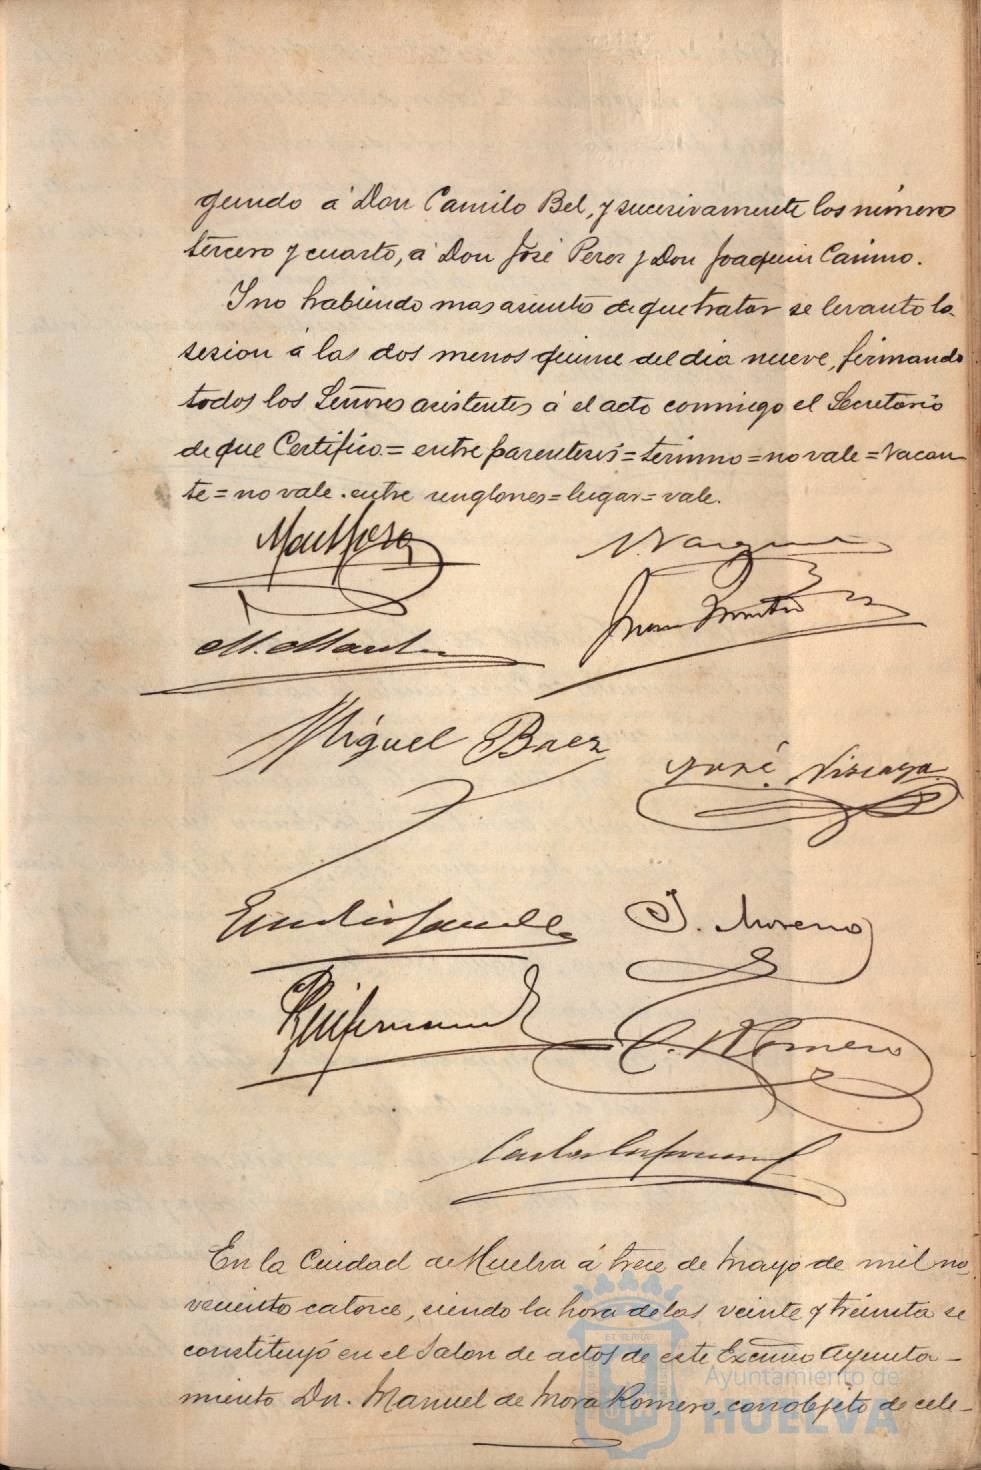 gundo á Don Camilo Bel, y sucesivamente los número
tercero y cuarto, á Don José Perez y Don Joaquin Casimo.
Y no habiendo mas asuntos de que tratar se levanto la
sesion á las dos menos quince del dia nueve, firmando
todos los Señores asistentes á el acto conmigo el Secretario
de que Certifico = entre parentesis = término = no vale = vacan
te = no vale. entre renglones = lugar = vale.
Man Mora
Juan
M.
Miguel Baez
José Vizcaya
Emilio
J. Moreno
C. Romero
Carlos
En la Ciudad de Huelva á trece de Mayo de mil no
veciento catorce, siendo la hora de las veinte y treinta se
constituyó en el Salon de actos de este Excmo Ayunta-
miento Dn. Manuel de Mora Romero, con objeto de cele-
Ayuntamiento de
HUELVA